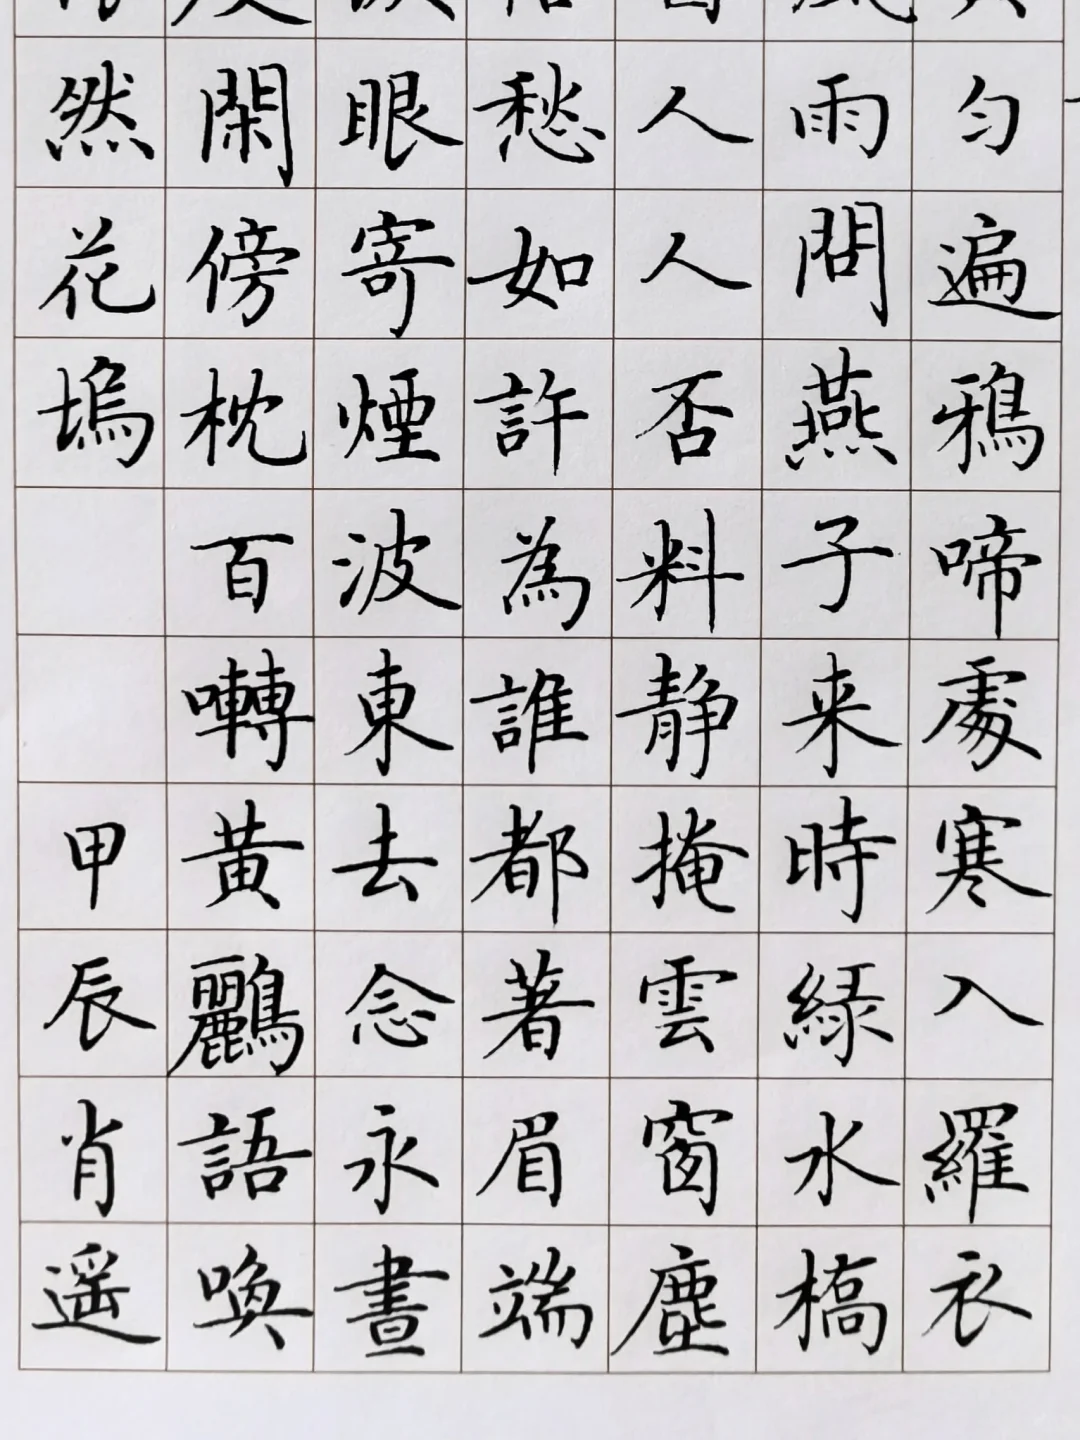 匀遍鴉啼處寒入羅衣
雨問燕子来時緑水橋
人人否料静掩雲窗塵
愁如許為誰都著眉端
眼寄煙波東去念永晝
閑傍枕百囀黄鸝語喚
然花塢
甲辰肖遥